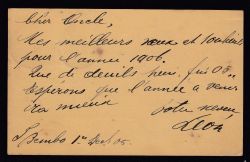 Cher Oncle,
Mes meilleurs vœux et souhaits
pour l'année 1906.
Que de deuils
Espérons que l'année à venir
ira mieux
votre neveu
Léon
Bembo 1er 05.